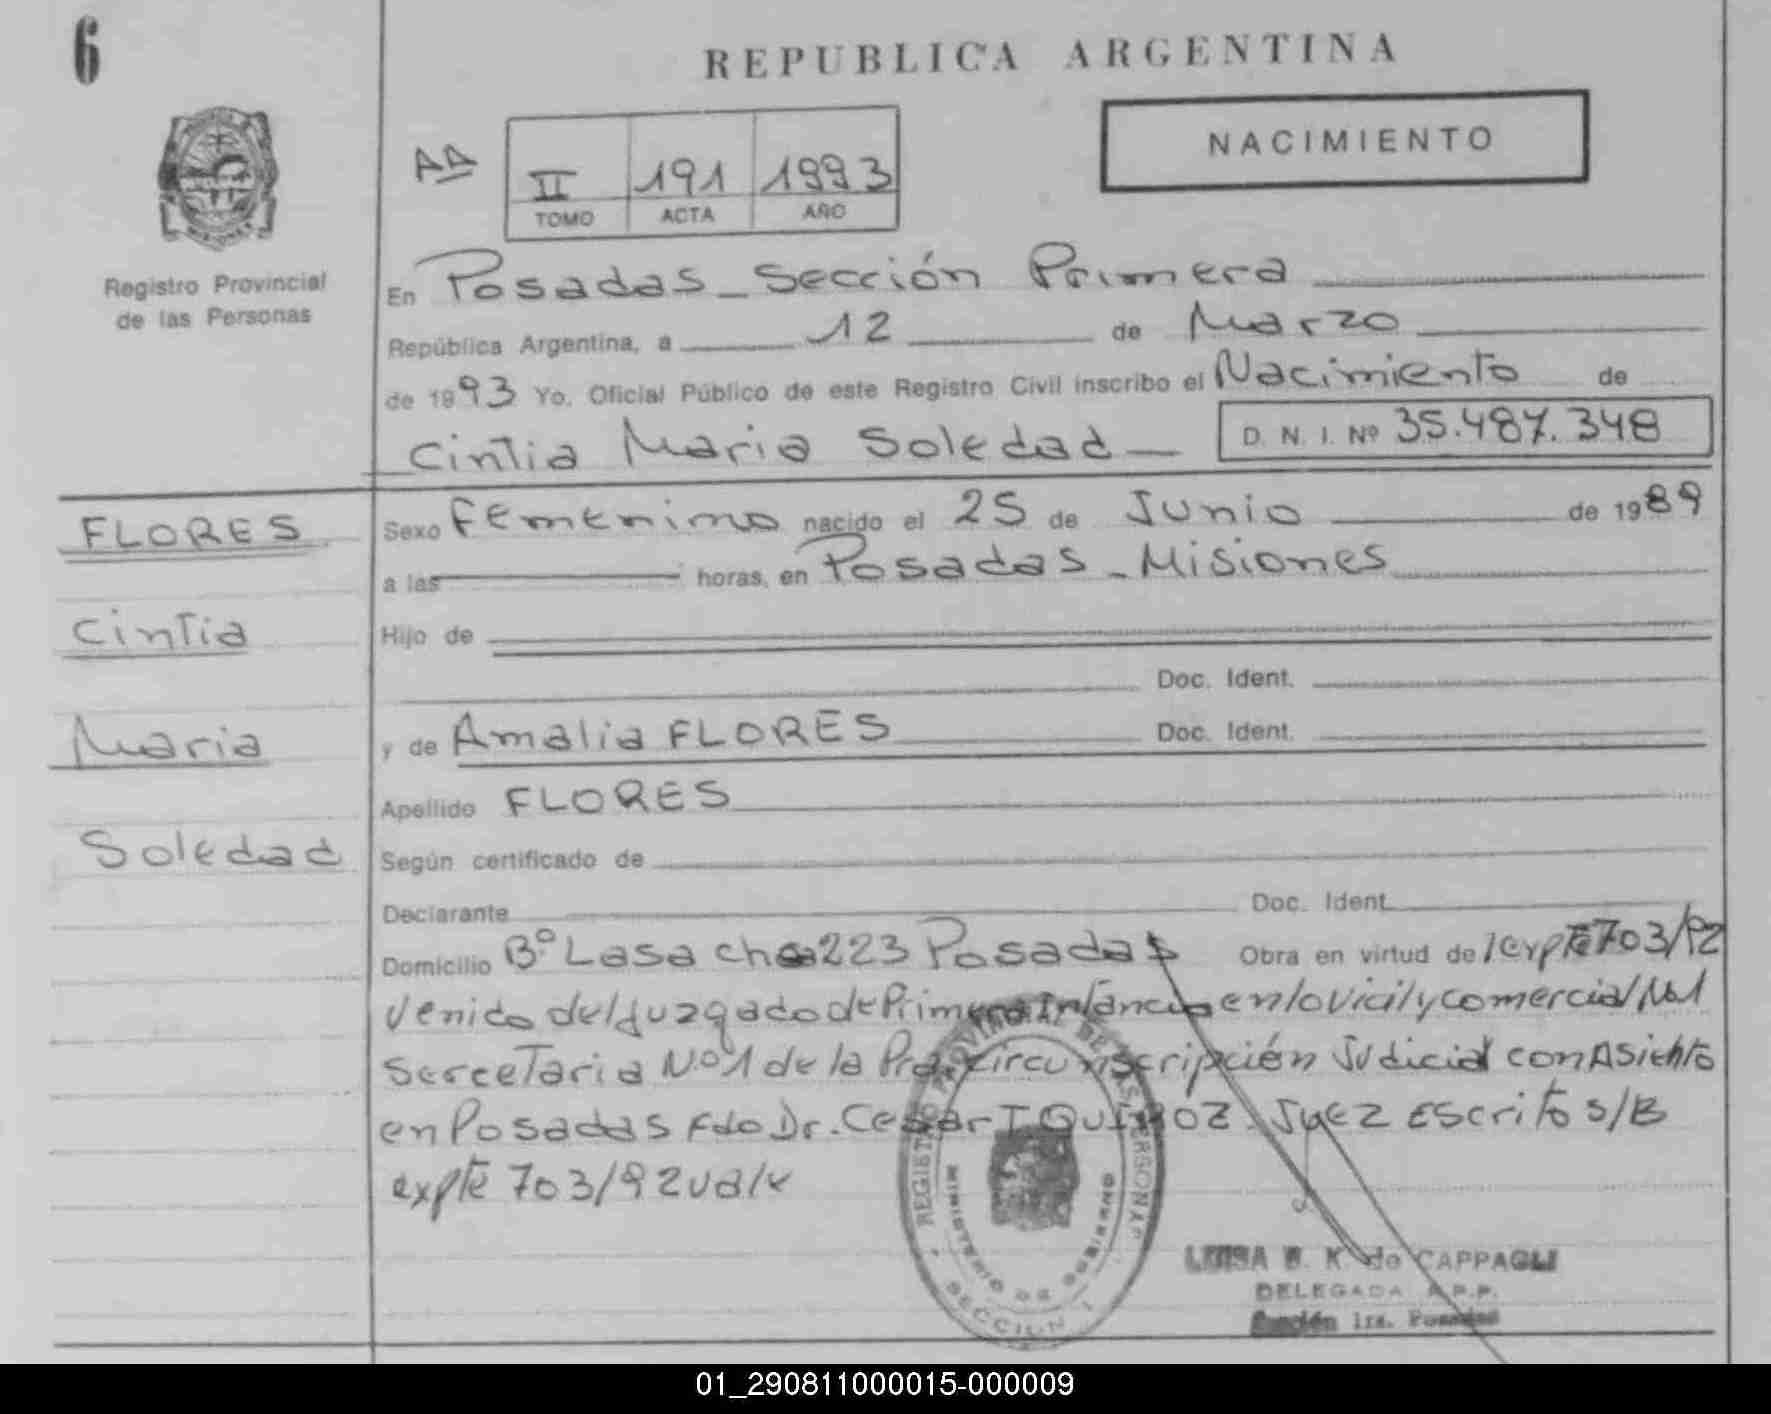 6
REPUBLICA ARGENTINA
NACIMIENTO
AD
II 191 1993
TOMO ACTA AÑO
Registro Provincial
de las Personas
En Posadas - Sección Primera
República Argentina, a 12 de Marzo
de 1993 Yo, Oficial Público de este Registro Civil inscribo el Nacimiento de
Cintia Maria Soledad D. N. I. Nº 35.487.348
FLORES
Cintia
Maria
Soledad
Sexo Femenino nacido el 25 de Junio de 1989
a las horas, en Posadas - Misiones
Hijo de
Doc. Ident.
y de Amalia FLORES Doc. Ident.
Apellido FLORES
Según certificado de
Declarante Doc. Ident.
Domicilio Bº Lasa cha 223 Posadas Obra en virtud de expte 703/92
venido del Juzgado de Primera en lo y comercial No1
Secretaria N.º1 de la circunscripción Judicial con Asiento
en Posadas Fdo Dr. Cesar I QUIROZ. Juez Escrito S/B
expte 703/92 vale
REGISTRO PROVINCIAL DE LAS PERSONAS
MINISTERIO DE GOBIERNO
SECCION 1
LUISA B. K. de CAPPAGLI
DELEGADA R.P.P.
Sección 1ra. Posadas
01_290811000015-000009